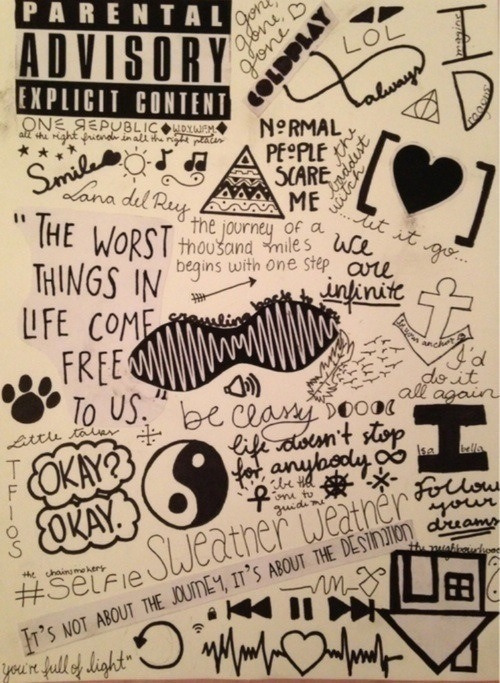 PARENTAL
ADVISORY
EXPLICIT CONTENT
gone,
gone,
gone
COLDPLAY
LOL
always
imagine
D
ragons
ONE REPUBLIC W.D.Y.W.F.M.
all the right friends in all the right places
Smile
Lana del Rey
NORMAL
PEOPLE
SCARE
ME
the
baddest
witch
...let it go...
"THE WORST
THINGS IN
LIFE COME
FREE
TO US."
the journey of a
thousand miles
begins with one step
we
are
infinite
crawling back to you
anchor
I'd
do it
all again
Little talks
be classy
TFIOS
OKAY?
OKAY.
life doesn't stop
for anybody
be the
one to
guide me
I
Isa
bella
Follow
your
dreams
Sweather weather
the neighbourhood
the chainsmokers
#SELFIE
IT'S NOT ABOUT THE JOURNEY, IT'S ABOUT THE DESTINATION
you're full of light"